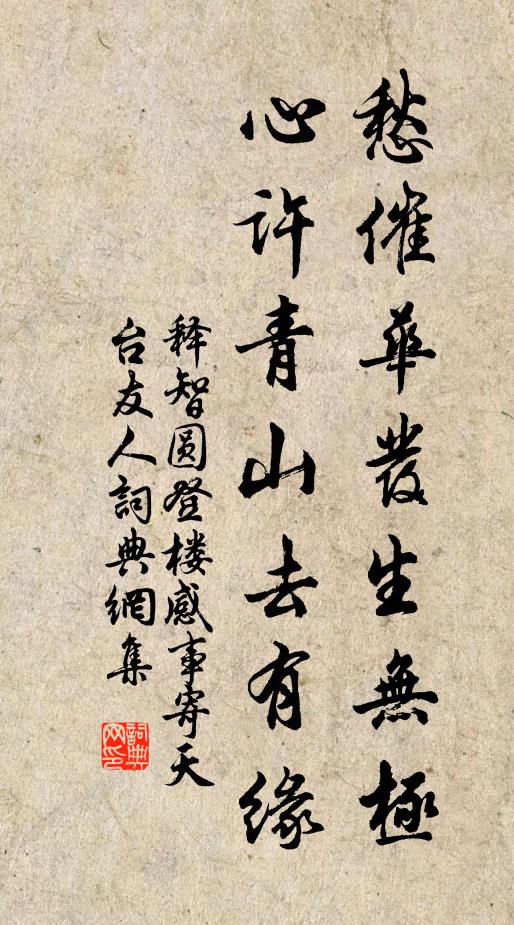 愁催華发生無極
心許青山去有緣
释智圆登楼感事寄天
台友人詞典網集
詞典网印